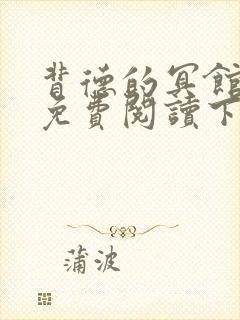 背德的冥館
免費閱讀下
蒲波